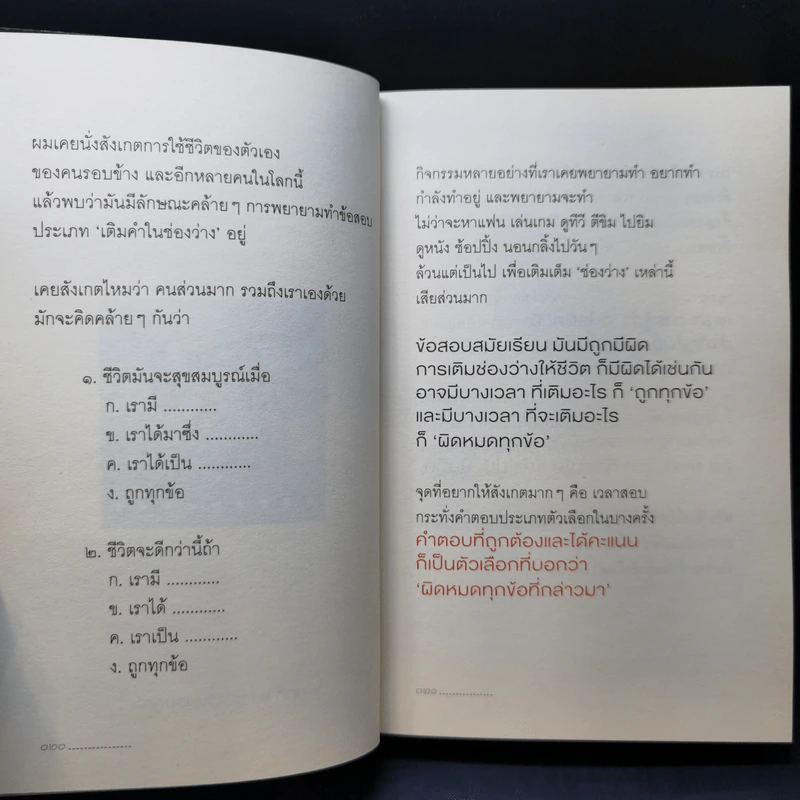 ผมเคยนั่งสังเกตการใช้ชีวิตของตัวเอง
ของคนรอบข้าง และอีกหลายคนในโลกนี้
แล้วพบว่ามันมีลักษณะคล้ายๆ การพยายามทำข้อสอบ
ประเภท ‘เติมคำในช่องว่าง’ อยู่
เคยสังเกตไหมว่า คนส่วนมาก รวมถึงเราเองด้วย
มักจะคิดคล้ายๆ กันว่า
๑. ชีวิตมันจะสุขสมบูรณ์เมื่อ
ก. เรามี ............
ข. เราได้มาซึ่ง ............
ค. เราได้เป็น ............
ง. ถูกทุกข้อ
๒. ชีวิตจะดีกว่านี้ถ้า
ก. เรามี ............
ข. เราได้ ............
ค. เราเป็น ............
ง. ถูกทุกข้อ
๐๒๐
กิจกรรมหลายอย่างที่เราเคยพยายามทำ อยากทำ
กำลังทำอยู่ และพยายามจะทำ
ไม่ว่าจะหาแฟน เล่นเกม ดูทีวี ตีขิม ไปยิม
ดูหนัง ช้อปปิ้ง นอนกลิ้งไปวันๆ
ล้วนแต่เป็นไป เพื่อเติมเต็ม ‘ช่องว่าง’ เหล่านี้
เสียส่วนมาก
ข้อสอบสมัยเรียน มันมีถูกมีผิด
การเติมช่องว่างให้ชีวิต ก็มีผิดได้เช่นกัน
อาจมีบางเวลา ที่เติมอะไร ก็ ‘ถูกทุกข้อ’
และมีบางเวลา ที่จะเติมอะไร
ก็ ‘ผิดหมดทุกข้อ’
จุดที่อยากให้สังเกตมากๆ คือ เวลาสอบ
กระทั่งคำตอบประเภทตัวเลือกในบางครั้ง
คำตอบที่ถูกต้องและได้คะแนน
ก็เป็นตัวเลือกที่บอกว่า
‘ผิดหมดทุกข้อที่กล่าวมา’
๐๒๑